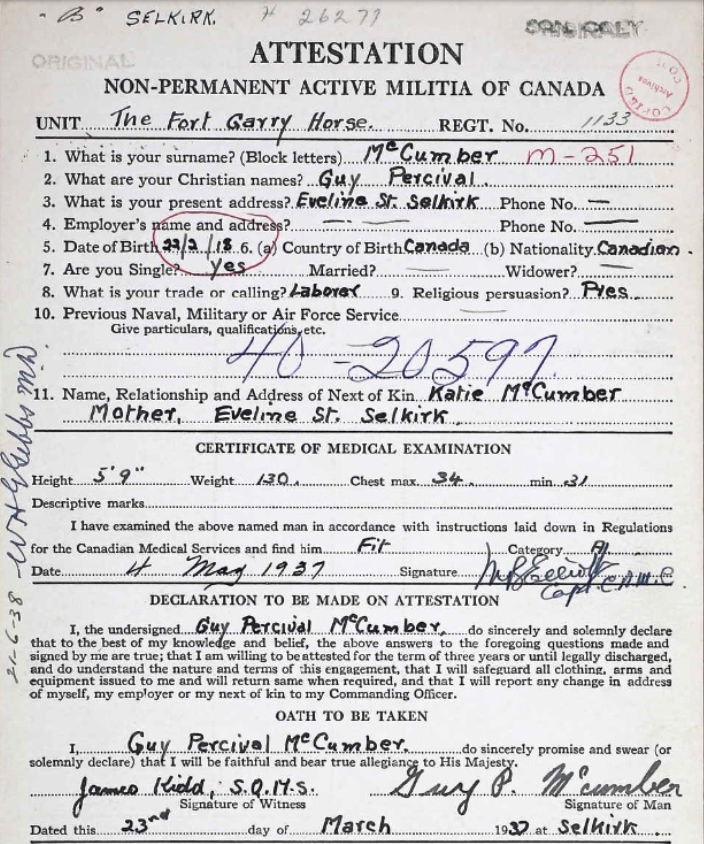 "B" SELKIRK. H 26277
ORIGINAL
ATTESTATION
NON-PERMANENT ACTIVE MILITIA OF CANADA
COPIED
Archives
UNIT The Fort Garry Horse. REGT. No. 1133
1. What is your surname? (Block letters) McCumber M-251
2. What are your Christian names? Guy Percival.
3. What is your present address? Eveline St. Selkirk Phone No. —
4. Employer's name and address? — Phone No. —
5. Date of Birth 22/2/18. 6. (a) Country of Birth Canada (b) Nationality Canadian.
7. Are you Single? Yes Married? — Widower? —
8. What is your trade or calling? Laborer 9. Religious persuasion? Pres.
10. Previous Naval, Military or Air Force Service —
Give particulars, qualifications, etc.
40-20597
11. Name, Relationship and Address of Next of Kin Katie McCumber
Mother, Eveline St. Selkirk.
CERTIFICATE OF MEDICAL EXAMINATION
Height 5'9" Weight 130. Chest max. 34. min. 31
Descriptive marks
I have examined the above named man in accordance with instructions laid down in Regulations
for the Canadian Medical Services and find him Fit Category A
Date 4 May 1937 Signature
Capt. C.A.M.C.
21-6-38
DECLARATION TO BE MADE ON ATTESTATION
I, the undersigned Guy Percival McCumber, do sincerely and solemnly declare
that to the best of my knowledge and belief, the above answers to the foregoing questions made and
signed by me are true; that I am willing to be attested for the term of three years or until legally discharged,
and do understand the nature and terms of this engagement, that I will safeguard all clothing, arms and
equipment issued to me and will return same when required, and that I will report any change in address
of myself, my employer or my next of kin to my Commanding Officer.
OATH TO BE TAKEN
I, Guy Percival McCumber. do sincerely promise and swear (or
solemnly declare) that I will be faithful and bear true allegiance to His Majesty.
James Kidd, S.Q.M.S. Guy P. McCumber
Signature of Witness Signature of Man
Dated this 23rd day of March 1937 at Selkirk.